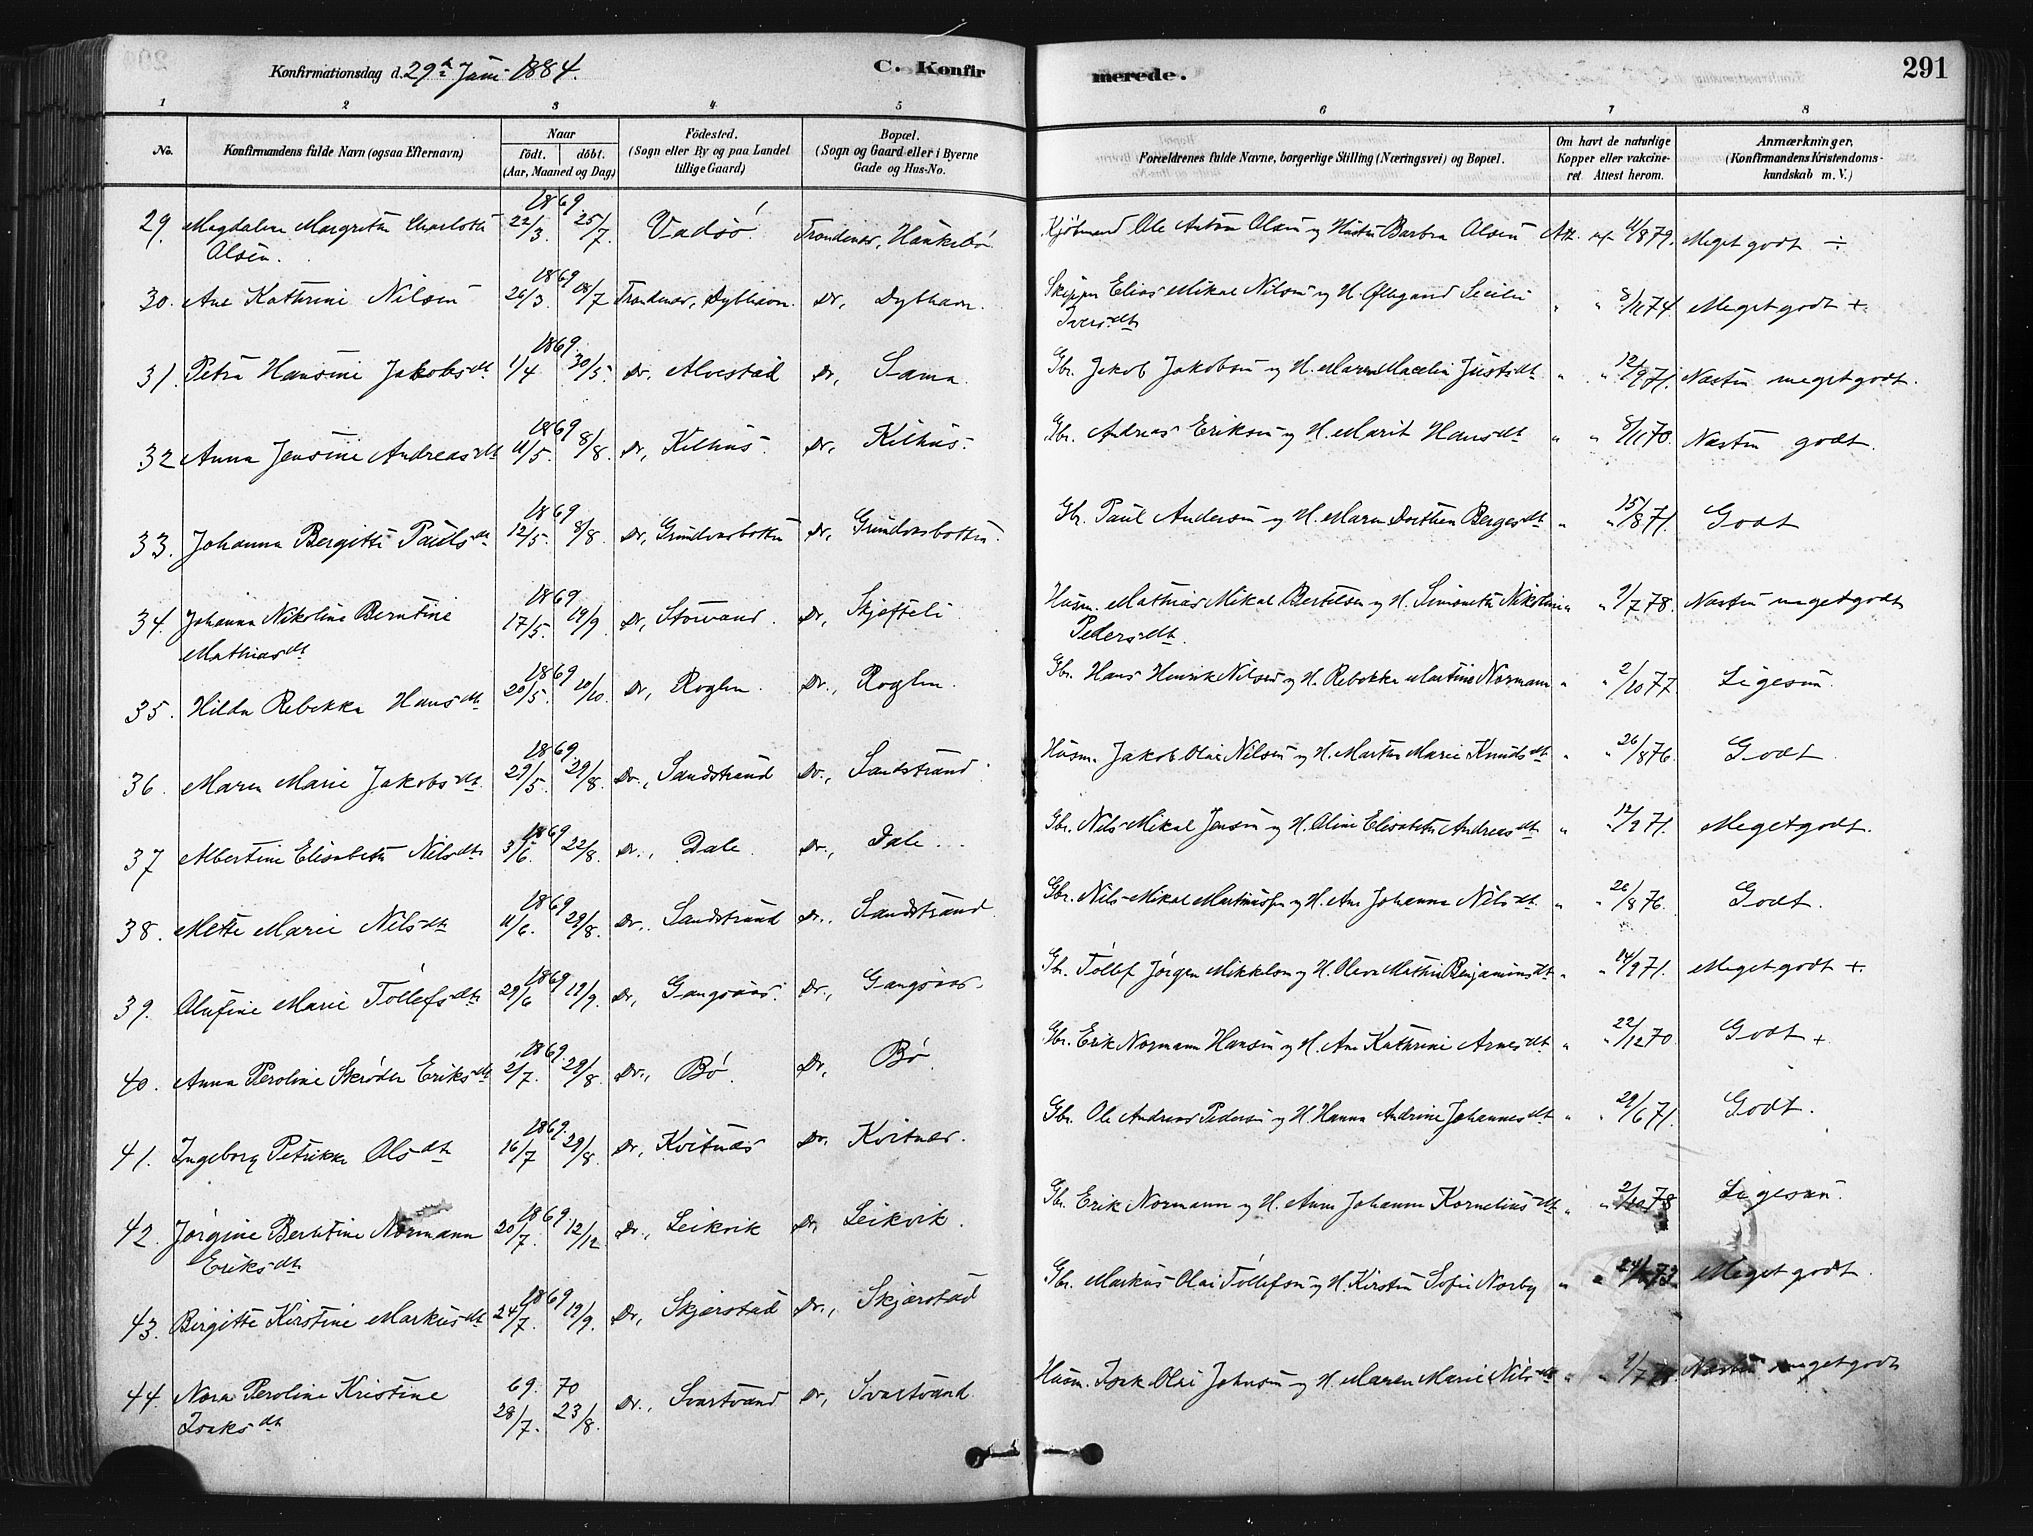 Konfirmationsdag d. 29de Juni 1884.
C. Konfirmerede.
291
1 2 3 4 5 6 7 8
No. Konfirmandens fulde Navn (ogsaa Efternavn) Naar født. døbt. (Aar, Maaned og Dag) Fødested. (Sogn eller By og paa Landet tillige Gaard) Bopæl. (Sogn og Gaard eller i Byerne Gade og Hus-No. Forældrenes fulde Navne, borgerlige Stilling (Næringsvei) og Bopæl. Om havt de naturlige Kopper eller vakcineret Attest herom. Anmærkninger, (Konfirmandens Kristendomskundskab m. V.)
29. Magdalene Margrethe Charlotte 1869 22/3. 25/7. Vadsö. Trondenæs, Haukebö. Kjöbmand Ole Anton Olsen og Hustru Barbra Olsen Att. af 11/8 79. Meget godt ÷
Olsen.
30. Ane Kathrine Nilsen 1869 26/3. 18/7 Trondenæs, Dybhavn. Do, Dybhavn. Skipper Elias Mikal Nilsen og H. Ollegaard Secilie " " 8/11 74. Meget godt +
Iversdtr
31. Petra Hansine Jakobsdtr 1869. 1/4 30/5. Do, Alvestad Do, Sama. Gbr. Jakob Jakobsen og H. Maren Macelie Justsdtr " " 12/9 71. Næsten meget godt.
32 Anna Jensine Andreasdtr 1869 11/5. 8/8. Do, Kilhus. Do, Kilhus. Gbr. Andreas Eriksen og H. Marit Hansdtr " " 8/11 70. Næsten godt.
33. Johanna Bergitte Paulsdtr 1869 12/5. 8/8. Do, Grundvasbotten Do, Grundvasbotten. Gbr. Paul Andersen og H. Maren Dorthea Bergesdtr " " 15/8 71. Godt
34. Johanna Nikoline Berntine 1869 17/5. 19/9. Do, Storvand. Do, Skjefteli Husm. Mathias Mikal Bertelsen og H. Simonette Nikoline " " 9/7 78. Næsten meget godt
Mathiasdtr Pedersdtr.
35. Hilda Rebekka Hansdtr 1869 20/5. 10/10. Do, Roglen. Do., Roglen. Gbr. Hans Henrik Nilsen og H. Rebekka Martine Normann " " 2/10 77. Ligesaa.
36. Maren Marie Jakobsdtr. 1869 29/5. 29/8. Do., Sandstrand Do., Sandstrand. Husm. Jakob Olai Nilsen og H. Martha Marie Knudsdtr " " 26/8 76. Godt.
37 Albertine Elisabeth Nilsdtr 1869 3/6. 22/8. Do., Dale. Do., Dale. Gbr. Nils Mikal Jensen og H. Oline Elisabeth Andreasdtr " " 12/9 71. Meget godt.
38. Mette Marie Nilsdtr 1869 11/6. 29/8. Do., Sandstrand Do., Sandstrand. Gbr. Nils Mikal Martinussen og H. Ane Johanna Nilsdtr " " 26/8 76. Godt.
39. Olufine Marie Tollefsdtr 1869 29/6 19/9. Do, Gangsaas. Do., Gangsaas. Gbr. Tollef Jörgen Mikkelsen og H. Olava Mathea Benjaminsdtr " " 14/9 71. Meget godt +.
40. Anna Peroline Skröder Eriksdtr 1869. 2/7. 29/8. Do., Bö. Do, Bö. Gbr. Erik Normann Hansen og H. Ane Kathrine Arnesdtr " " 22/12 70. Godt +
41. Ingeborg Petrikke Olsdtr 1869. 16/7 29/8. Do, Kvitnæs Do. Kvitnæs. Gbr. Ole Andreas Pedersen og H. Hanna Andrine Johannesdtr " " 29/6 71. Godt.
42. Jörgine Bertine Normann 1869 20/7. 12/12. Do., Leikvik Do, Leikvik. Gbr. Erik Normann og H. Anne Johanne Korneliusdtr " " 2/10 78 Ligesaa.
Eriksdtr
43. Birgitte Kirstine Markusdtr 1869 24/7. 19/9. Do, Skjærstad Do., Skjærstad Gbr. Markus Olai Tollefsen og H. Kirsten Sofie Norby " " Meget godt.
44. Nora Peroline Kristine 69. 70 28/7. 23/8. Do., Svartvand Do, Svartvand. Husm. Isak Olai Johnsen og H. Maren Marie Nilsdtr " " Næsten meget godt
Isaksdtr